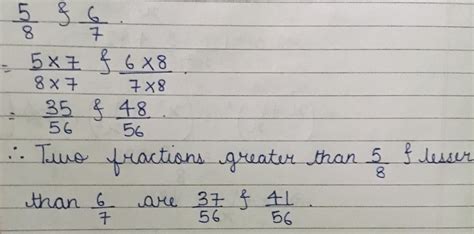 5/8 & 6/7.
= 5×7/8×7 & 6×8/7×8.
= 35/56 & 48/56.
∴ Two fractions greater than 5/8 & lesser
than 6/7 are 37/56 & 41/56.